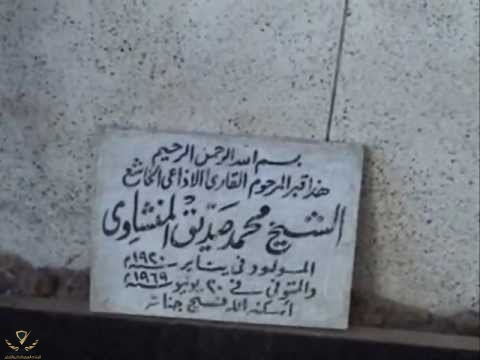 بسم الله الرحمن الرحيم
هذا قبر المرحوم القارئ الاذاعى الخاشع
الشيخ محمد صديق المنشاوى
المولود فى يناير ١٩٢٠م
والمتوفى فى ٢٠ يونيو ١٩٦٩م
أسكنه الله فسيح جناته